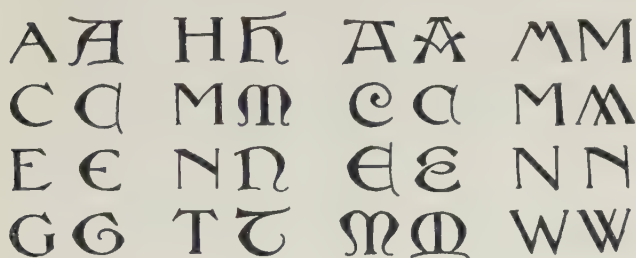 A A H H A A M M
C C M M C C M M
E E N N E E N N
G G T T M M W W